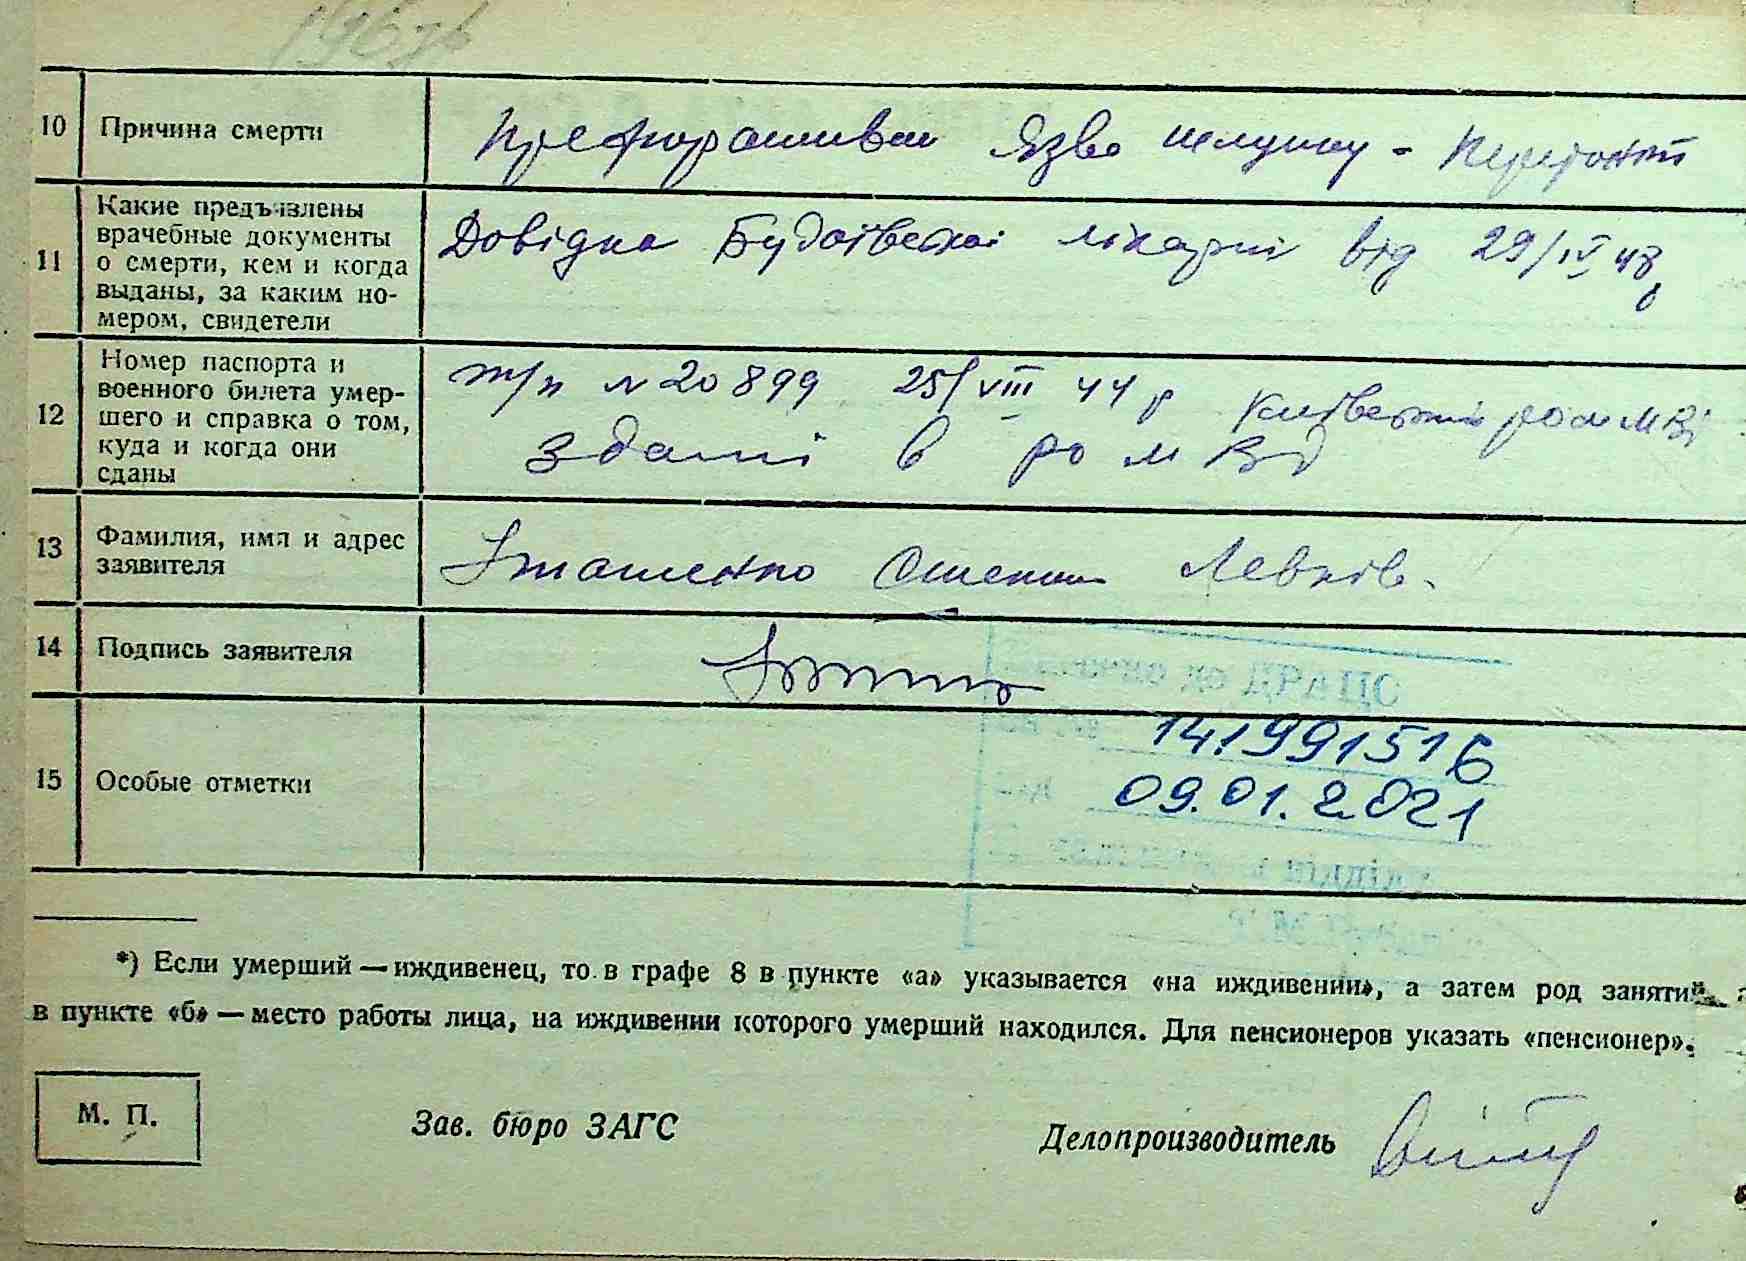 10 Причина смерти
Язва шлунку - Перитоніт
11 Какие предъявлены
врачебные документы
о смерти, кем и когда
выданы, за каким но-
мером, свидетели
Довідка Будаївської лікарні від 29/IV 48 р
12 Номер паспорта и
военного билета умер-
шего и справка о том,
куда и когда они
сданы
п № 20899 25/VIII 44 р Київським МВД
здані в РО МВД
13 Фамилия, имя и адрес
заявителя
Степан Левків.
14 Подпись заявителя
до ДРАЦС
15 Особые отметки
141991516
09.01.2021
*) Если умерший — иждивенец, то в графе 8 в пункте «а» указывается «на иждивении», а затем род занятий, а
в пункте «б» — место работы лица, на иждивении которого умерший находился. Для пенсионеров указать «пенсионер».
М. П.
Зав. бюро ЗАГС
Делопроизводитель